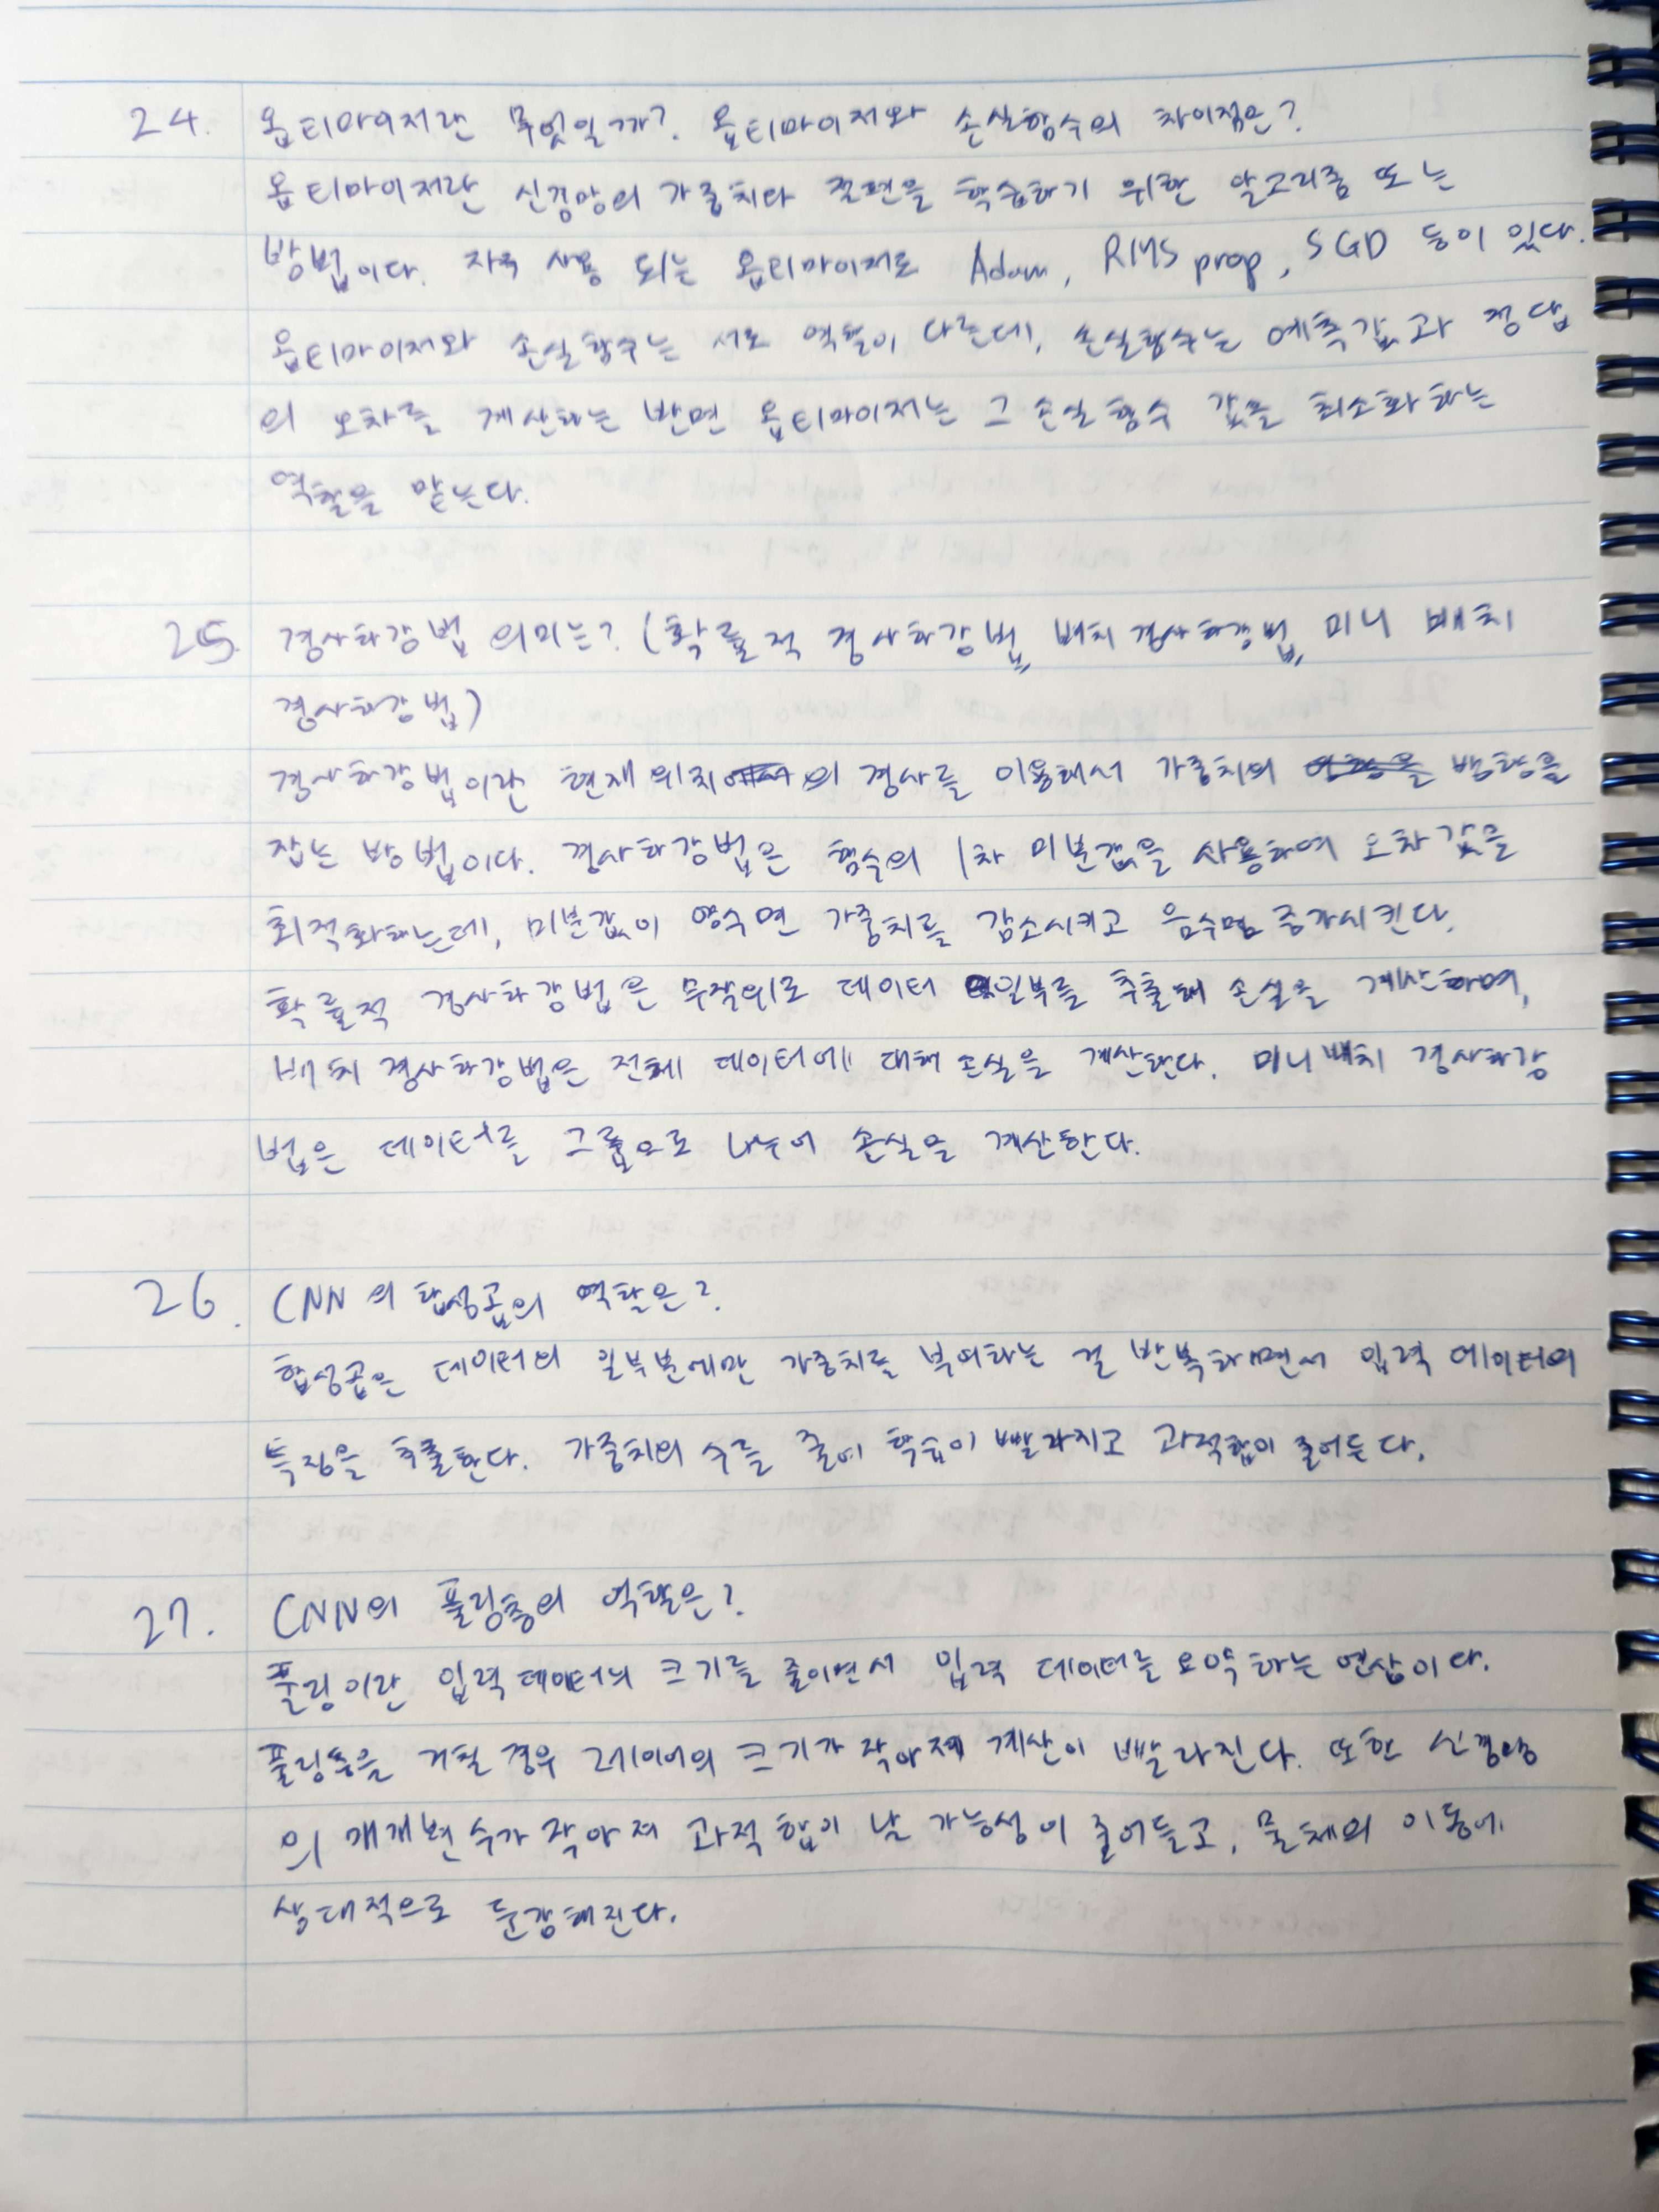 24. 옵티마이저란 무엇일까? 옵티마이저와 손실함수의 차이점은?
옵티마이저란 신경망의 가중치와 절편을 학습하기 위한 알고리즘 또는
방법이다. 자주 사용 되는 옵티마이저로 Adam, RMS prop, SGD 등이 있다.
옵티마이저와 손실함수는 서로 역할이 다른데, 손실함수는 예측값과 정답
의 오차를 계산하는 반면 옵티마이저는 그 손실함수 값을 최소화하는
역할을 맡는다.
25. 경사하강법 의미는? (확률적 경사하강법, 배치 경사하강법, 미니 배치
경사하강법)
경사하강법이란 현재 위치의 경사를 이용해서 가중치의 방향을
잡는 방법이다. 경사하강법은 함수의 1차 미분값을 사용하여 오차값을
최적화하는데, 미분값이 양수면 가중치를 감소시키고 음수면 증가시킨다.
확률적 경사하강법은 무작위로 데이터 일부를 추출해 손실을 계산하며,
배치 경사하강법은 전체 데이터에 대해 손실을 계산한다. 미니 배치 경사하강
법은 데이터를 그룹으로 나누어 손실을 계산한다.
26. CNN의 합성곱의 역할은?
합성곱은 데이터의 일부분에만 가중치를 부여하는 걸 반복하면서 입력 데이터의
특징을 추출한다. 가중치의 수를 줄여 학습이 빨라지고 과적합이 줄어든다.
27. CNN의 풀링층의 역할은?
풀링이란 입력 데이터의 크기를 줄이면서 입력 데이터를 요약하는 연산이다.
풀링층을 거칠 경우 레이어의 크기가 작아져 계산이 빨라진다. 또한 신경망
의 매개변수가 작아져 과적합이 날 가능성이 줄어들고, 물체의 이동에
상대적으로 둔감해진다.